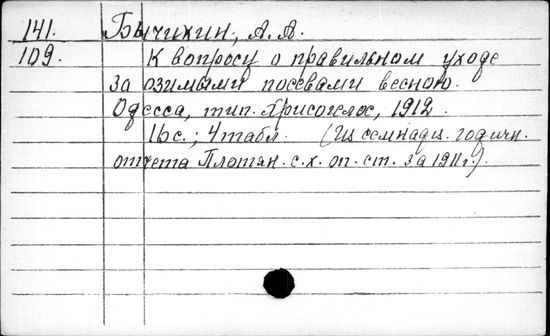 141. Бычихин, А. А.
109. К вопросу о правильном уходе
за озимыми посевами весною.
Одесса, тип. Хрисогелос, 1912.
16с.; 4 табл. (Из семнадц. годичн.
отчета Плотян. с.х. оп. ст. за 1911г.).